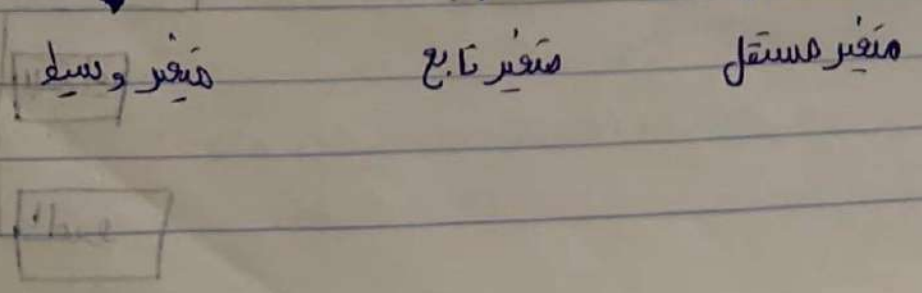 متغير مستقل متغير تابع متغير وسيط